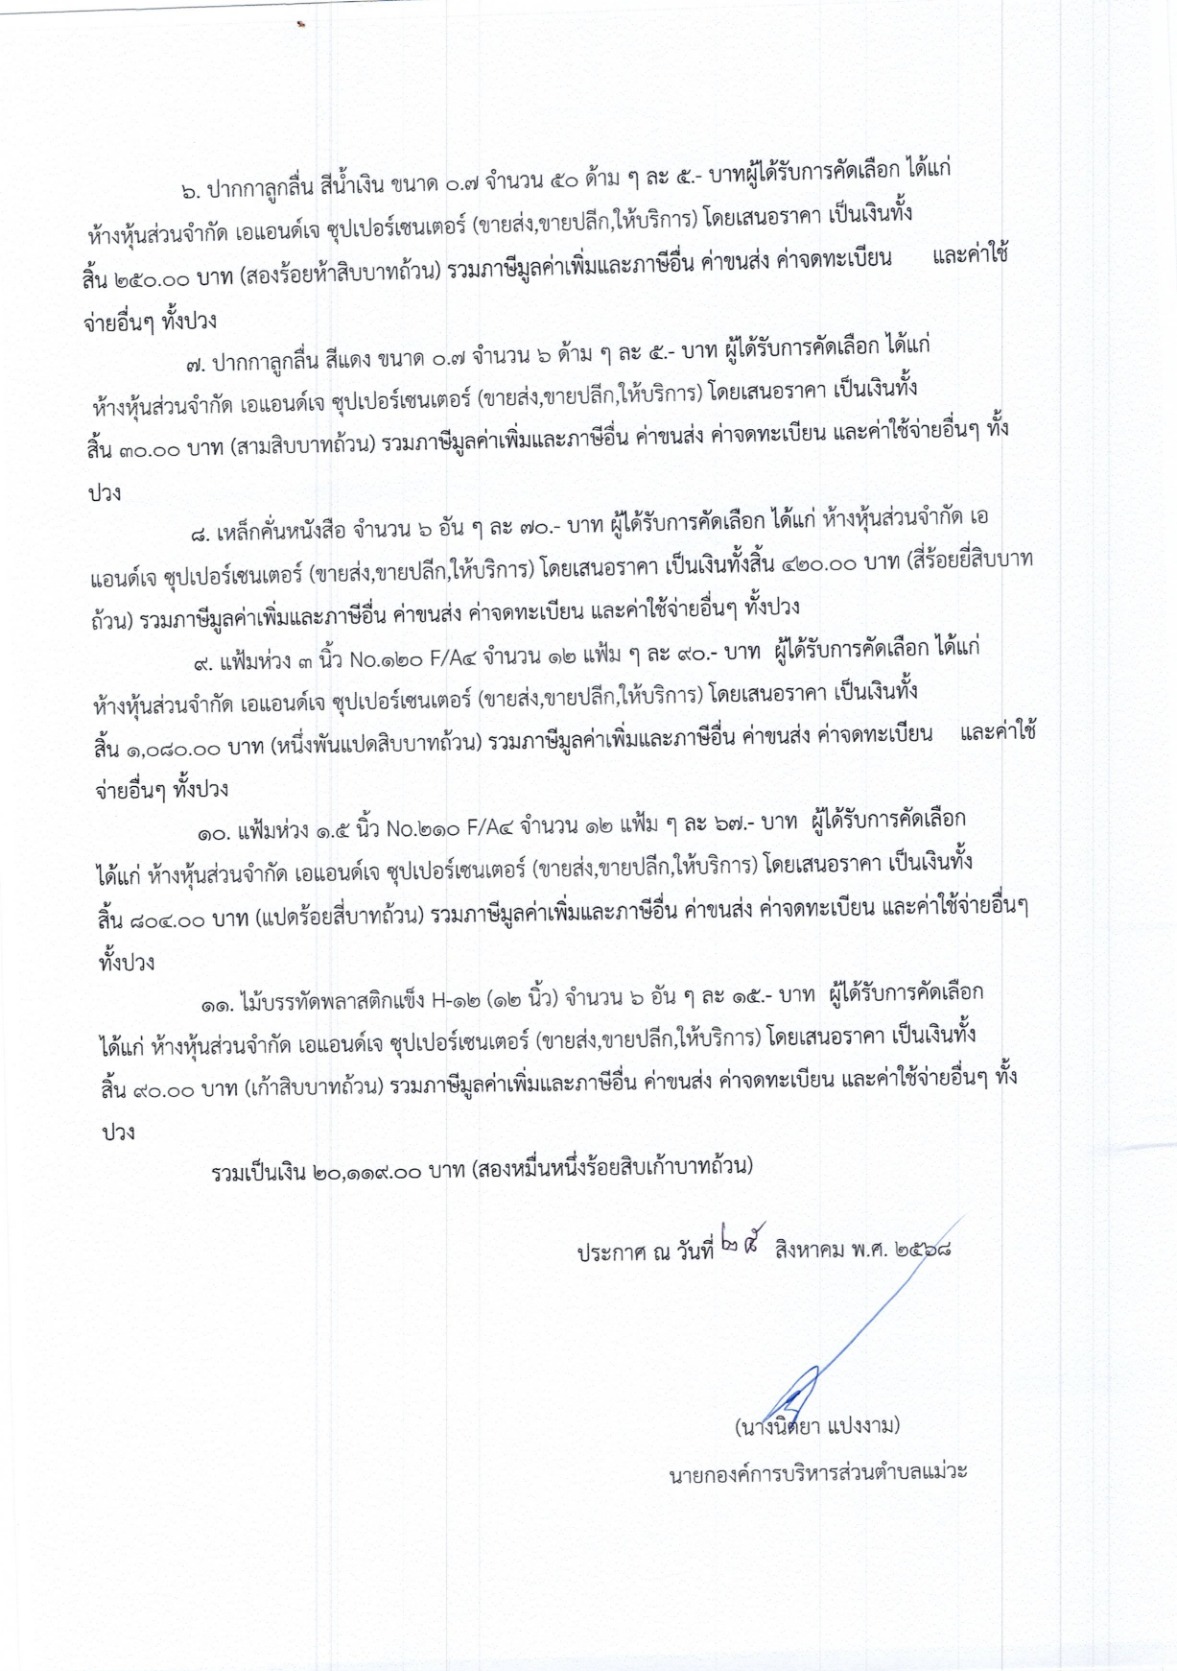 ๖. ปากกาลูกลื่น สีน้ำเงิน ขนาด ๐.๗ จำนวน ๕๐ ด้าม ๆ ละ ๕.- บาทผู้ได้รับการคัดเลือก ได้แก่
ห้างหุ้นส่วนจำกัด เอแอนด์เจ ซุปเปอร์เซนเตอร์ (ขายส่ง,ขายปลีก,ให้บริการ) โดยเสนอราคา เป็นเงินทั้ง
สิ้น ๒๕๐.๐๐ บาท (สองร้อยห้าสิบบาทถ้วน) รวมภาษีมูลค่าเพิ่มและภาษีอื่น ค่าขนส่ง ค่าจดทะเบียน และค่าใช้
จ่ายอื่นๆ ทั้งปวง
๗. ปากกาลูกลื่น สีแดง ขนาด ๐.๗ จำนวน ๖ ด้าม ๆ ละ ๕.- บาท ผู้ได้รับการคัดเลือก ได้แก่
ห้างหุ้นส่วนจำกัด เอแอนด์เจ ซุปเปอร์เซนเตอร์ (ขายส่ง,ขายปลีก,ให้บริการ) โดยเสนอราคา เป็นเงินทั้ง
สิ้น ๓๐.๐๐ บาท (สามสิบบาทถ้วน) รวมภาษีมูลค่าเพิ่มและภาษีอื่น ค่าขนส่ง ค่าจดทะเบียน และค่าใช้จ่ายอื่นๆ ทั้ง
ปวง
๘. เหล็กคั่นหนังสือ จำนวน ๖ อัน ๆ ละ ๗๐.- บาท ผู้ได้รับการคัดเลือก ได้แก่ ห้างหุ้นส่วนจำกัด เอ
แอนด์เจ ซุปเปอร์เซนเตอร์ (ขายส่ง,ขายปลีก,ให้บริการ) โดยเสนอราคา เป็นเงินทั้งสิ้น ๔๒๐.๐๐ บาท (สี่ร้อยยี่สิบบาท
ถ้วน) รวมภาษีมูลค่าเพิ่มและภาษีอื่น ค่าขนส่ง ค่าจดทะเบียน และค่าใช้จ่ายอื่นๆ ทั้งปวง
๙. แฟ้มห่วง ๓ นิ้ว No.๑๒๐ F/A๔ จำนวน ๑๒ แฟ้ม ๆ ละ ๙๐.- บาท ผู้ได้รับการคัดเลือก ได้แก่
ห้างหุ้นส่วนจำกัด เอแอนด์เจ ซุปเปอร์เซนเตอร์ (ขายส่ง,ขายปลีก,ให้บริการ) โดยเสนอราคา เป็นเงินทั้ง
สิ้น ๑,๐๘๐.๐๐ บาท (หนึ่งพันแปดสิบบาทถ้วน) รวมภาษีมูลค่าเพิ่มและภาษีอื่น ค่าขนส่ง ค่าจดทะเบียน และค่าใช้
จ่ายอื่นๆ ทั้งปวง
๑๐. แฟ้มห่วง ๑.๕ นิ้ว No.๒๑๐ F/A๔ จำนวน ๑๒ แฟ้ม ๆ ละ ๖๗.- บาท ผู้ได้รับการคัดเลือก
ได้แก่ ห้างหุ้นส่วนจำกัด เอแอนด์เจ ซุปเปอร์เซนเตอร์ (ขายส่ง,ขายปลีก,ให้บริการ) โดยเสนอราคา เป็นเงินทั้ง
สิ้น ๘๐๔.๐๐ บาท (แปดร้อยสี่บาทถ้วน) รวมภาษีมูลค่าเพิ่มและภาษีอื่น ค่าขนส่ง ค่าจดทะเบียน และค่าใช้จ่ายอื่นๆ
ทั้งปวง
๑๑. ไม้บรรทัดพลาสติกแข็ง H-๑๒ (๑๒ นิ้ว) จำนวน ๖ อัน ๆ ละ ๑๕.- บาท ผู้ได้รับการคัดเลือก
ได้แก่ ห้างหุ้นส่วนจำกัด เอแอนด์เจ ซุปเปอร์เซนเตอร์ (ขายส่ง,ขายปลีก,ให้บริการ) โดยเสนอราคา เป็นเงินทั้ง
สิ้น ๙๐.๐๐ บาท (เก้าสิบบาทถ้วน) รวมภาษีมูลค่าเพิ่มและภาษีอื่น ค่าขนส่ง ค่าจดทะเบียน และค่าใช้จ่ายอื่นๆ ทั้ง
ปวง
รวมเป็นเงิน ๒๐,๑๑๙.๐๐ บาท (สองหมื่นหนึ่งร้อยสิบเก้าบาทถ้วน)
ประกาศ ณ วันที่ ๒๕ สิงหาคม พ.ศ. ๒๕๖๘
(นางนิตยา แปงงาม)
นายกองค์การบริหารส่วนตำบลแม่วะ